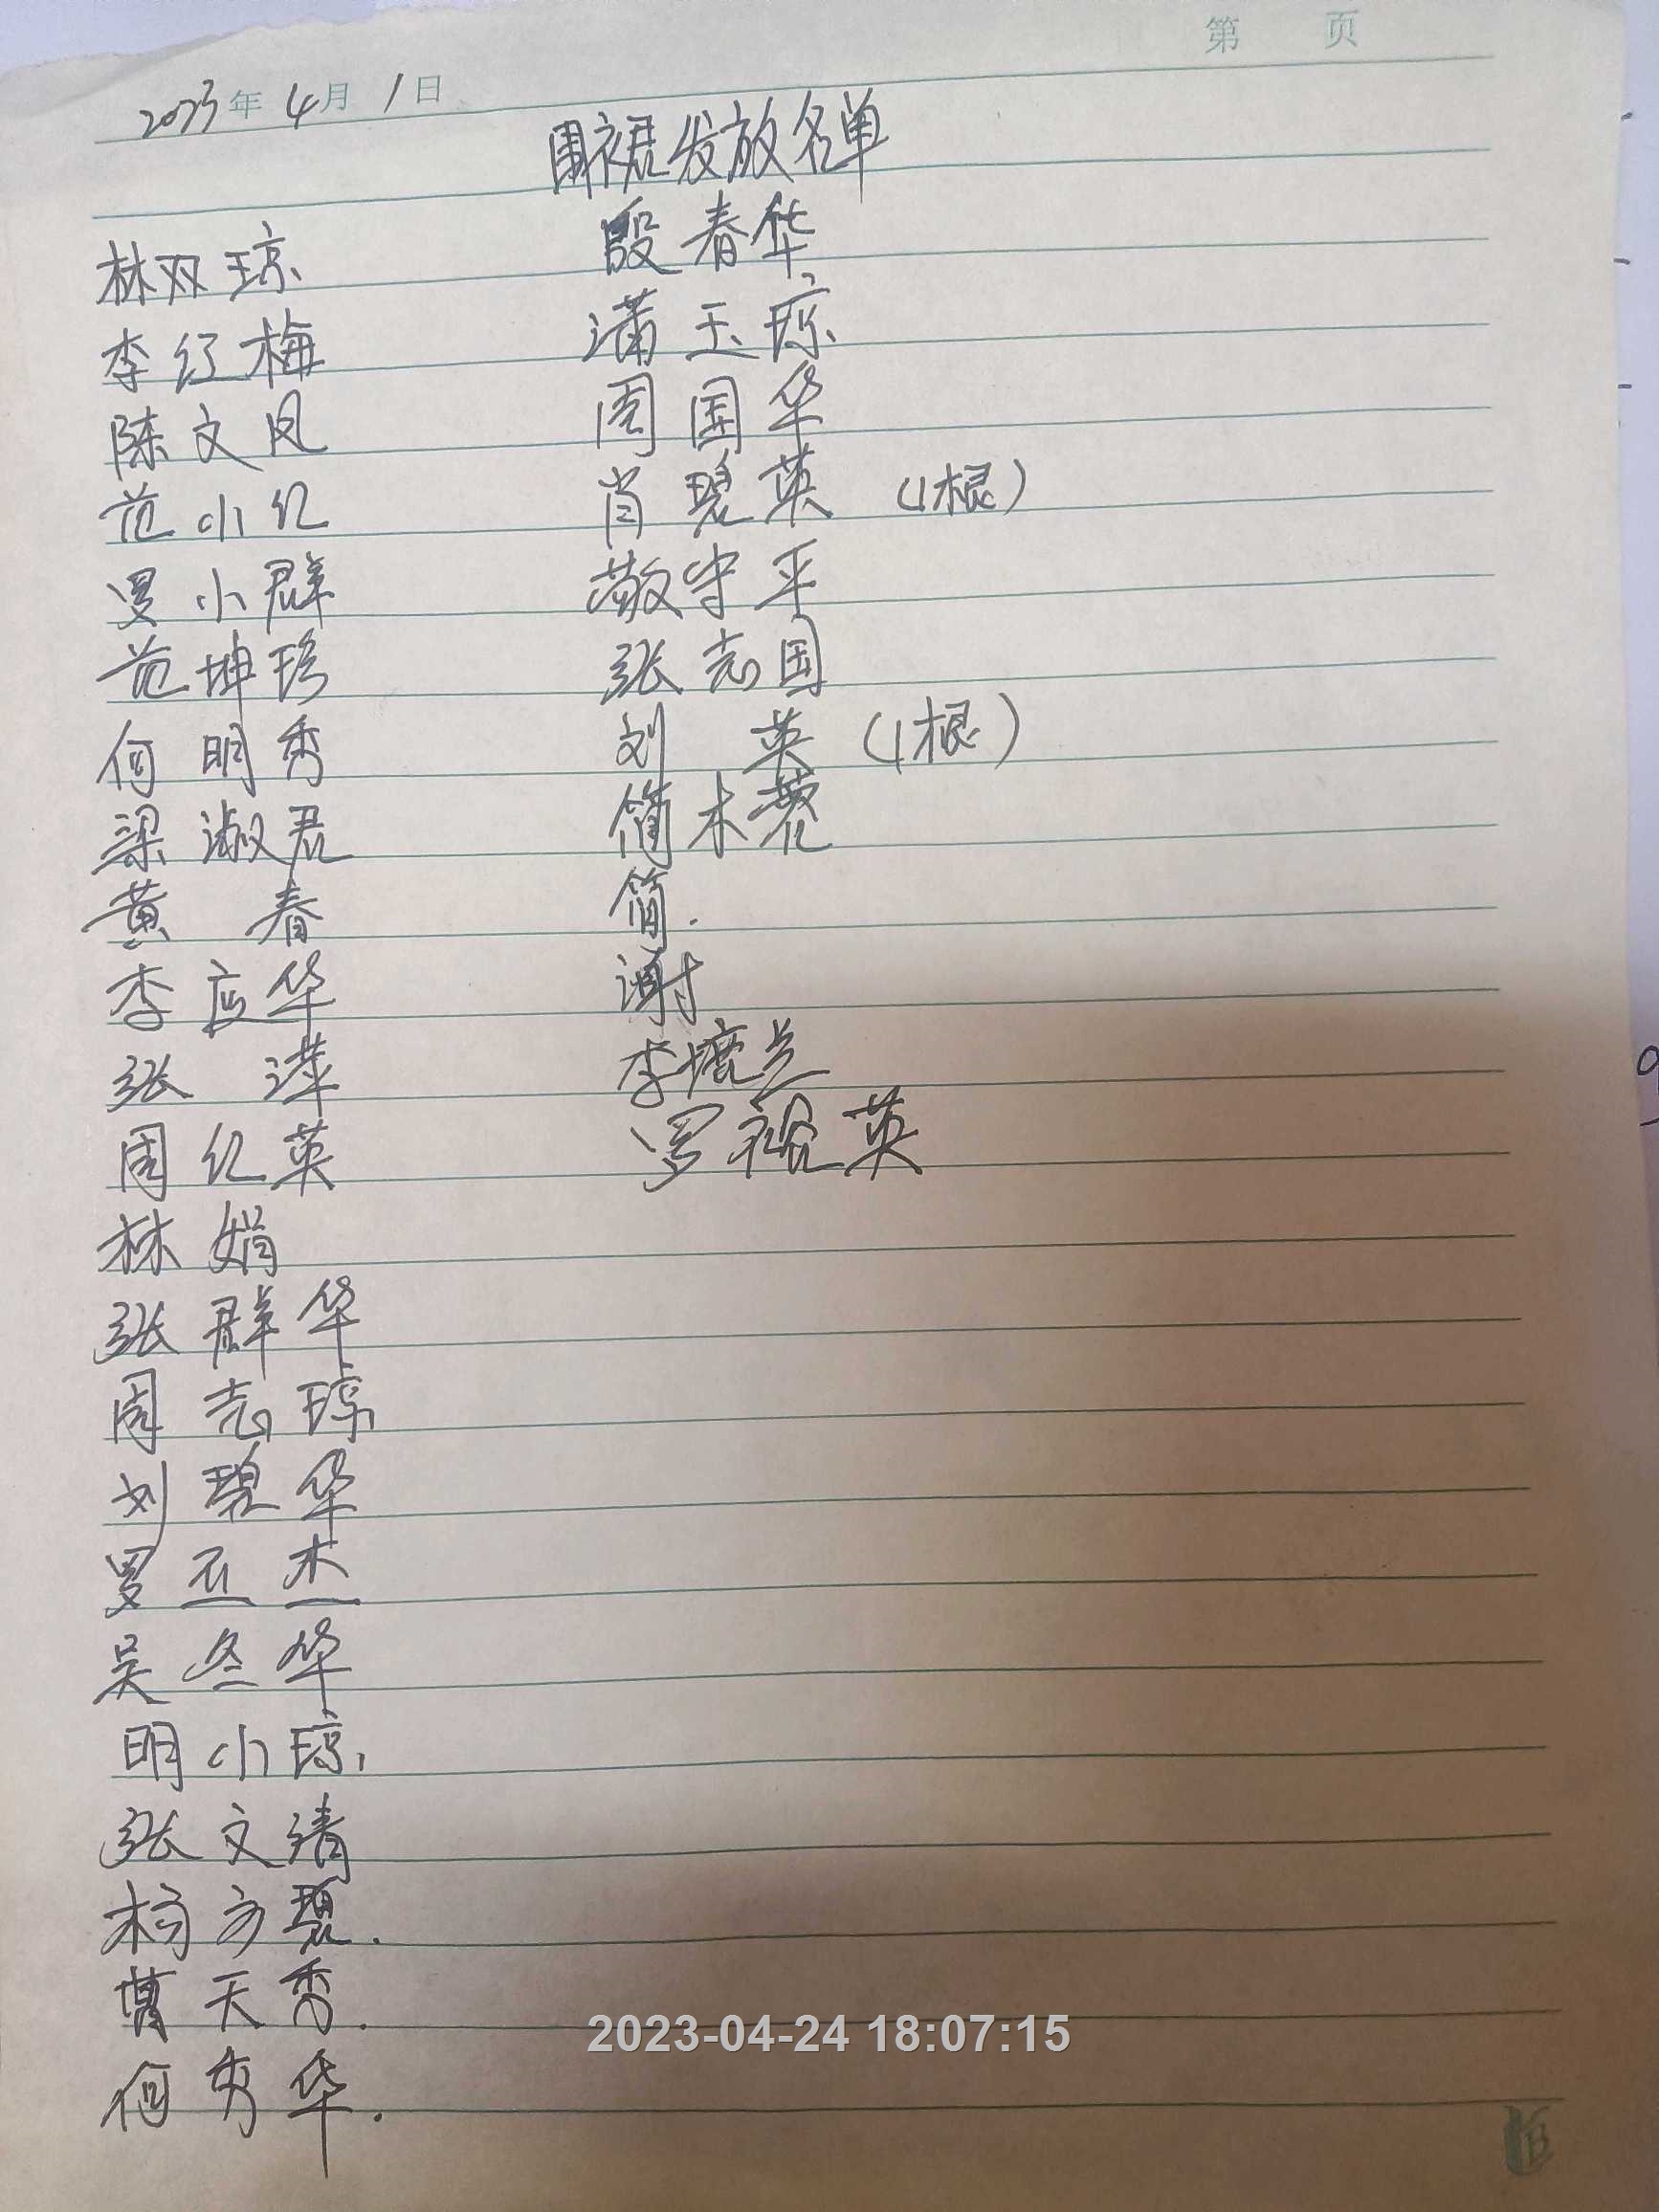 第 页
2023年 4月 1日
围裙发放名单
林双琼
李红梅
陈文凤
范小红
罗小群
范坤珍
何明秀
梁淑君
黄 春
李应华
张 萍
周红英
林娟
张群华
周志琼
刘碧华
罗丕杰
吴冬华
明小琼
张文清
杨方碧.
天秀.
何秀华.
殷春华
潇玉琼
周国华
肖碧英 (1根)
敬守平
张志国
刘 英 (1根)
简木
简.
谢
李 兰
罗裕英
2023-04-24 18:07:15